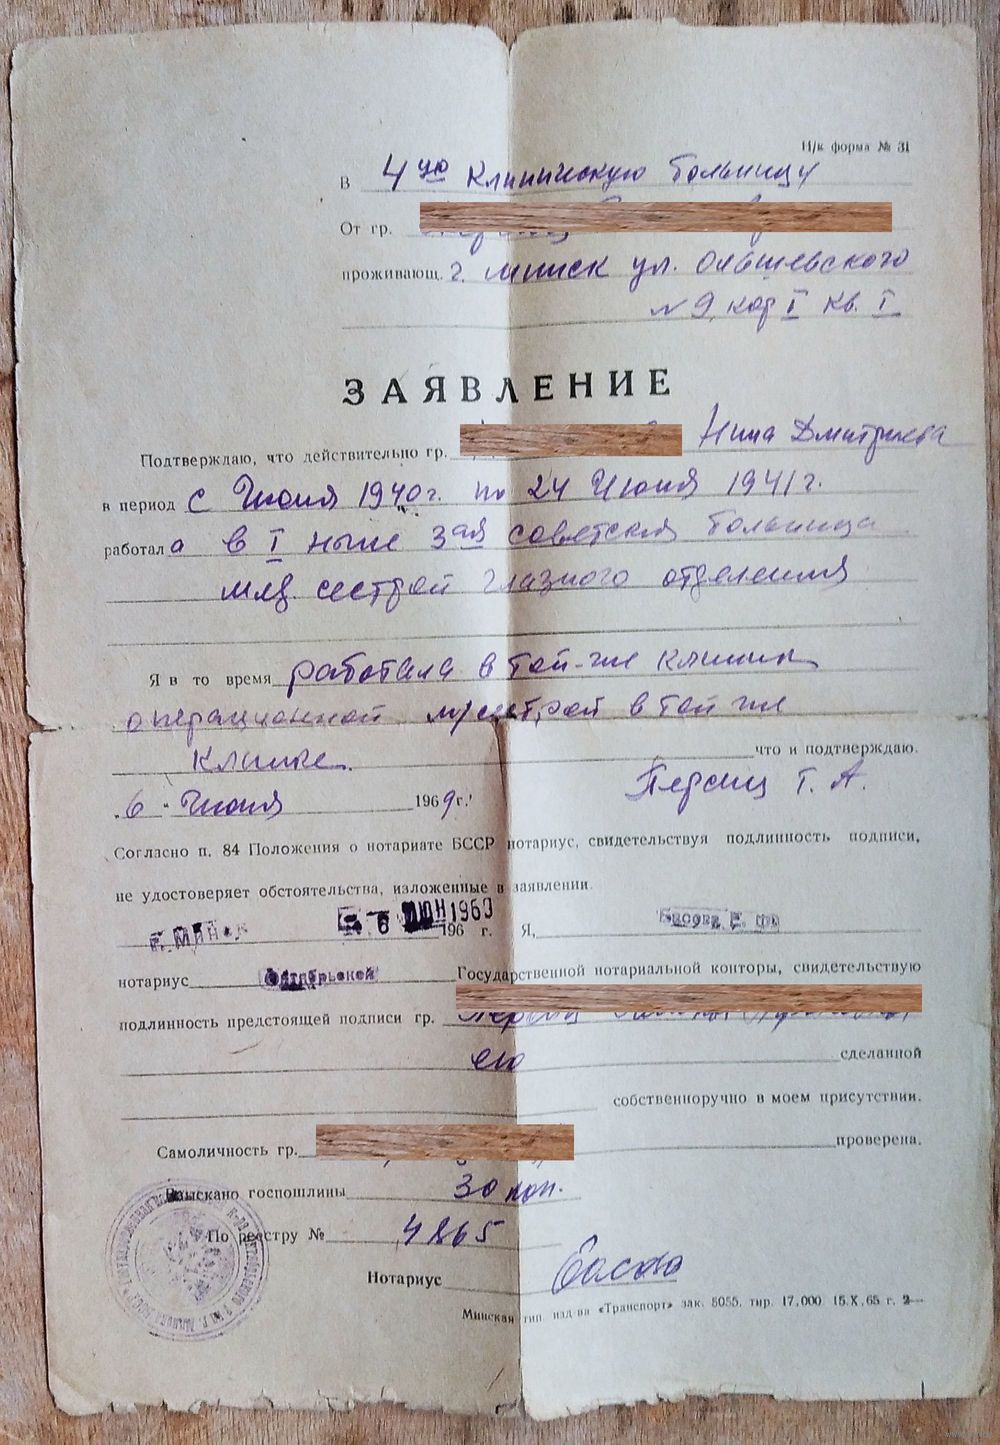 Н/к форма № 31
В 4ую клиническую больницу
От гр.
проживающ. г. Минск ул. Ольшевского
№ 9, кор I кв. I
ЗАЯВЛЕНИЕ
Подтверждаю, что действительно гр. Нина Дмитриева
в период с Июня 1940 г. по 24 Июня 1941 г.
работала в I ныне 3ая советская больница
мед. сестрой глазного отделения
Я в то время работала в той-же клинике
операционной м/сестрой в той же
клинике. что и подтверждаю.
Персиц Т. А.
„6 " Июня 1969 г.
Согласно п. 84 Положения о нотариате БССР нотариус, свидетельствуя подлинность подписи,
не удостоверяет обстоятельства, изложенные в заявлении.
г. МИНСК 6 ИЮН 1969 196 г. Я,
нотариус Октябрьской Государственной нотариальной конторы, свидетельствую
подлинность предстоящей подписи гр.
ею сделанной
собственноручно в моем присутствии.
Самоличность гр. проверена.
Взыскано госпошлины 30 коп.
По реестру № 4865
Нотариус
Минская тип. изд-ва «Транспорт» зак. 5055. тир. 17,000 15.X.65 г. 2—